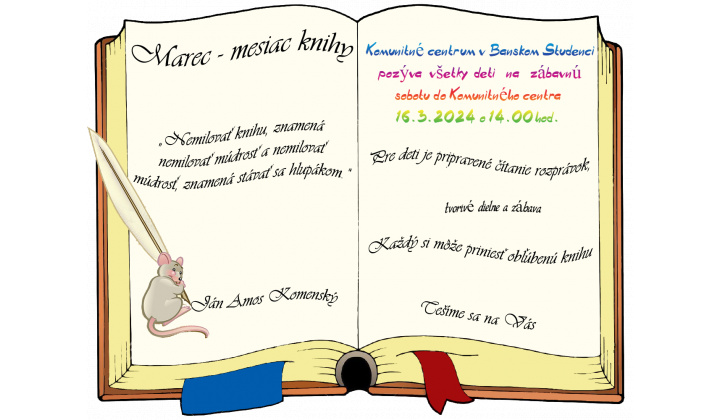 Marec - mesiac knihy
„Nemilovať knihu, znamená
nemilovať múdrosť a nemilovať
múdrosť, znamená stávať sa hlupákom."
Ján Amos Komenský
Komunitné centrum v Banskom Studenci
pozýva všetky deti na zábavnú
sobotu do Komunitného centra
16.3.2024 o 14.00 hod.
Pre deti je pripravené čítanie rozprávok,
tvorivé dielne a zábava
Každý si môže priniesť obľúbenú knihu
Tešíme sa na Vás